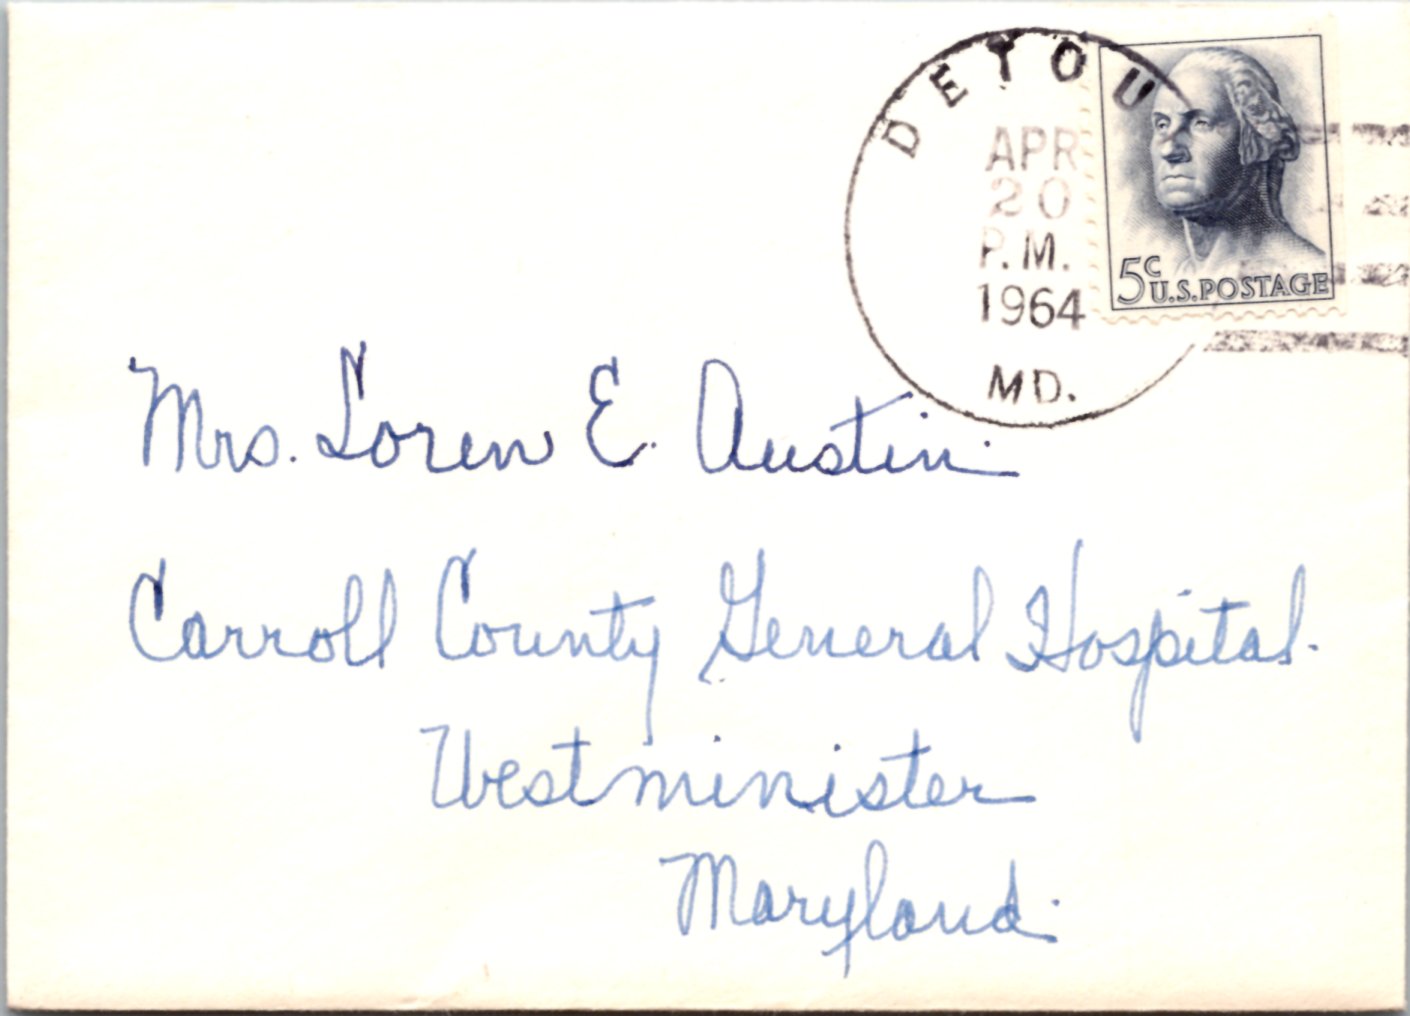 DETOU
APR
20
P.M.
1964
MD.
5c
U.S.POSTAGE
Mrs. Loren E. Austin.
Carroll County General Hospital.
Westminister
Maryland.